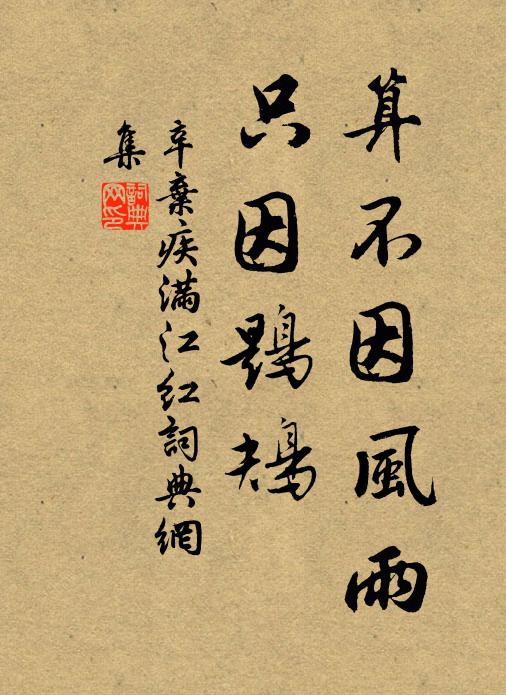 算不因風雨
只因鶗鴃
辛棄疾滿江紅詞典網
集
詞典網印